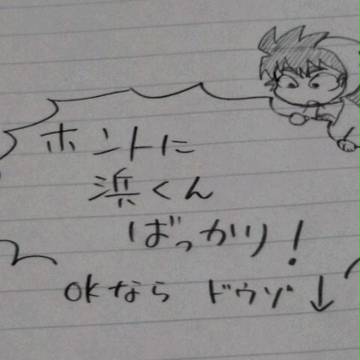 ホントに
浜くん
ばっかり!
OKなら ドウゾ↓